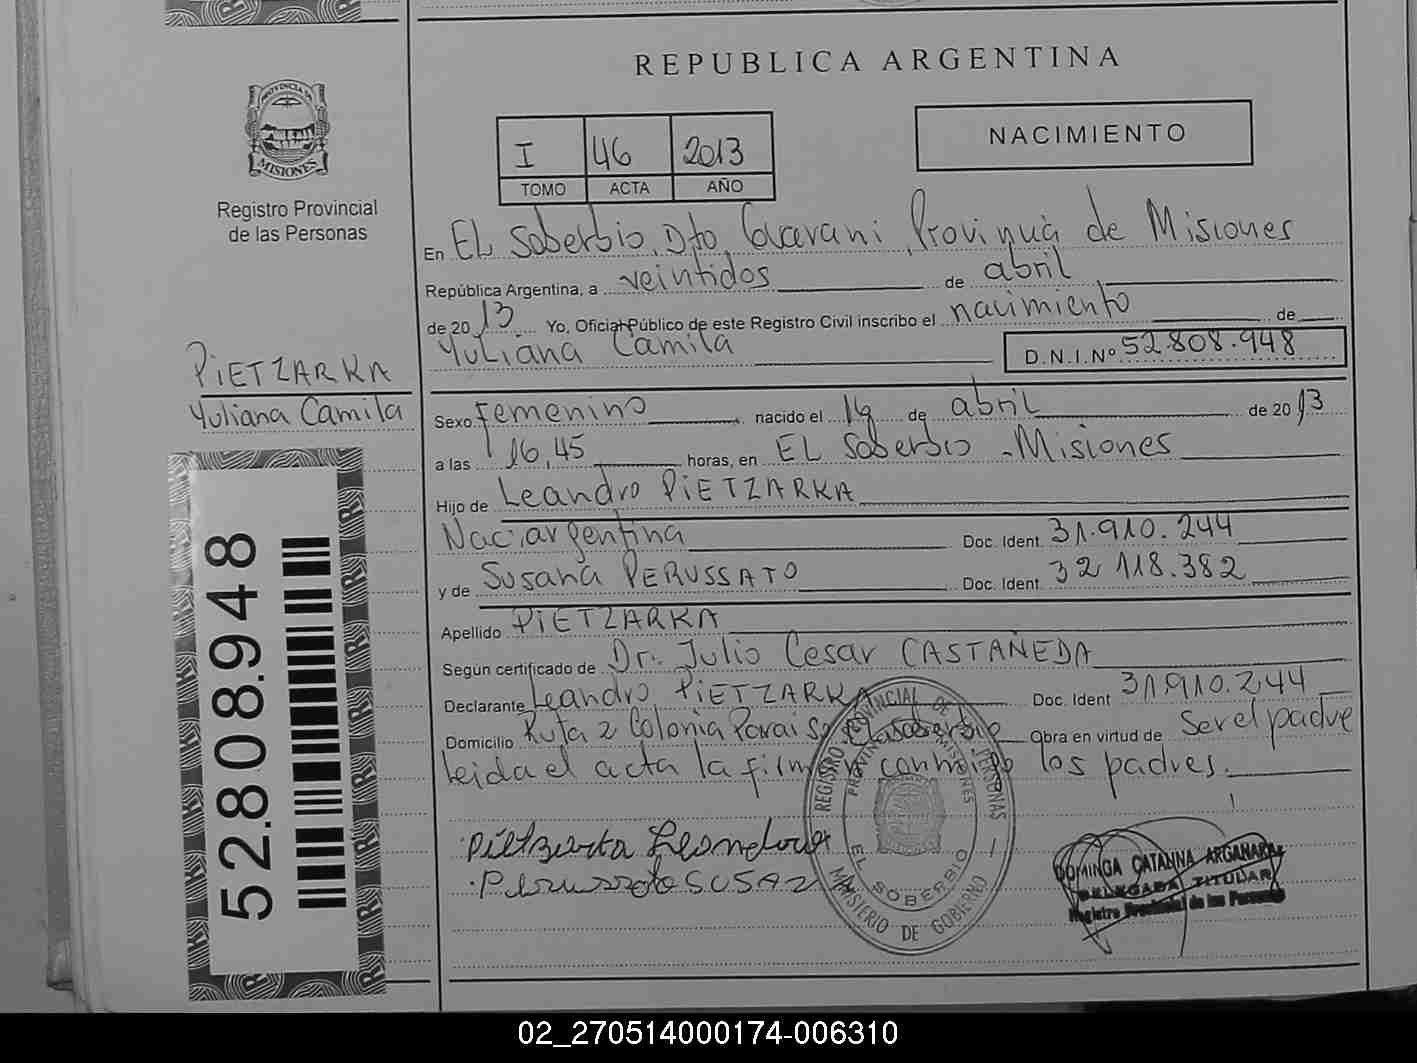 REPUBLICA ARGENTINA
PROVINCIA DE
MISIONES
Registro Provincial
de las Personas
I 46 2013
TOMO ACTA AÑO
NACIMIENTO
En EL Soberbio, Dto, Guarani, Provincia de Misiones
República Argentina, a veintidos de abril
de 2013 Yo, Oficial Público de este Registro Civil inscribo el nacimiento de
Yuliana Camila D.N.I.Nº 52.808.948
PIETZARKA
Yuliana Camila
Sexo Femenino nacido el 14 de abril de 2013
a las 16,45 horas, en EL Soberbio - Misiones
Hijo de Leandro PIETZARKA
Nac: argentina Doc. Ident. 31.910.244
y de Susana PERUSSATO Doc. Ident. 32 118.382
Apellido PIETZARKA
Según certificado de Dr. Julio Cesar CASTAÑEDA
Declarante Leandro PIETZARKA Doc. Ident 31.910.244
Domicilio Ruta 2 Colonia Paraiso El Soberbio Obra en virtud de ser el padre
leida el acta la firman conmigo los padres.
52.808.948
Pietzarka Leandro
Perussato SUSANA
REGISTRO PROVINCIAL DE LAS PERSONAS
PROVINCIA MISIONES
EL SOBERBIO
MINISTERIO DE GOBIERNO
DOMINGA CATALINA ARGAÑARAZ
DELEGADA TITULAR
Registro Provincial de las Personas
02_270514000174-006310